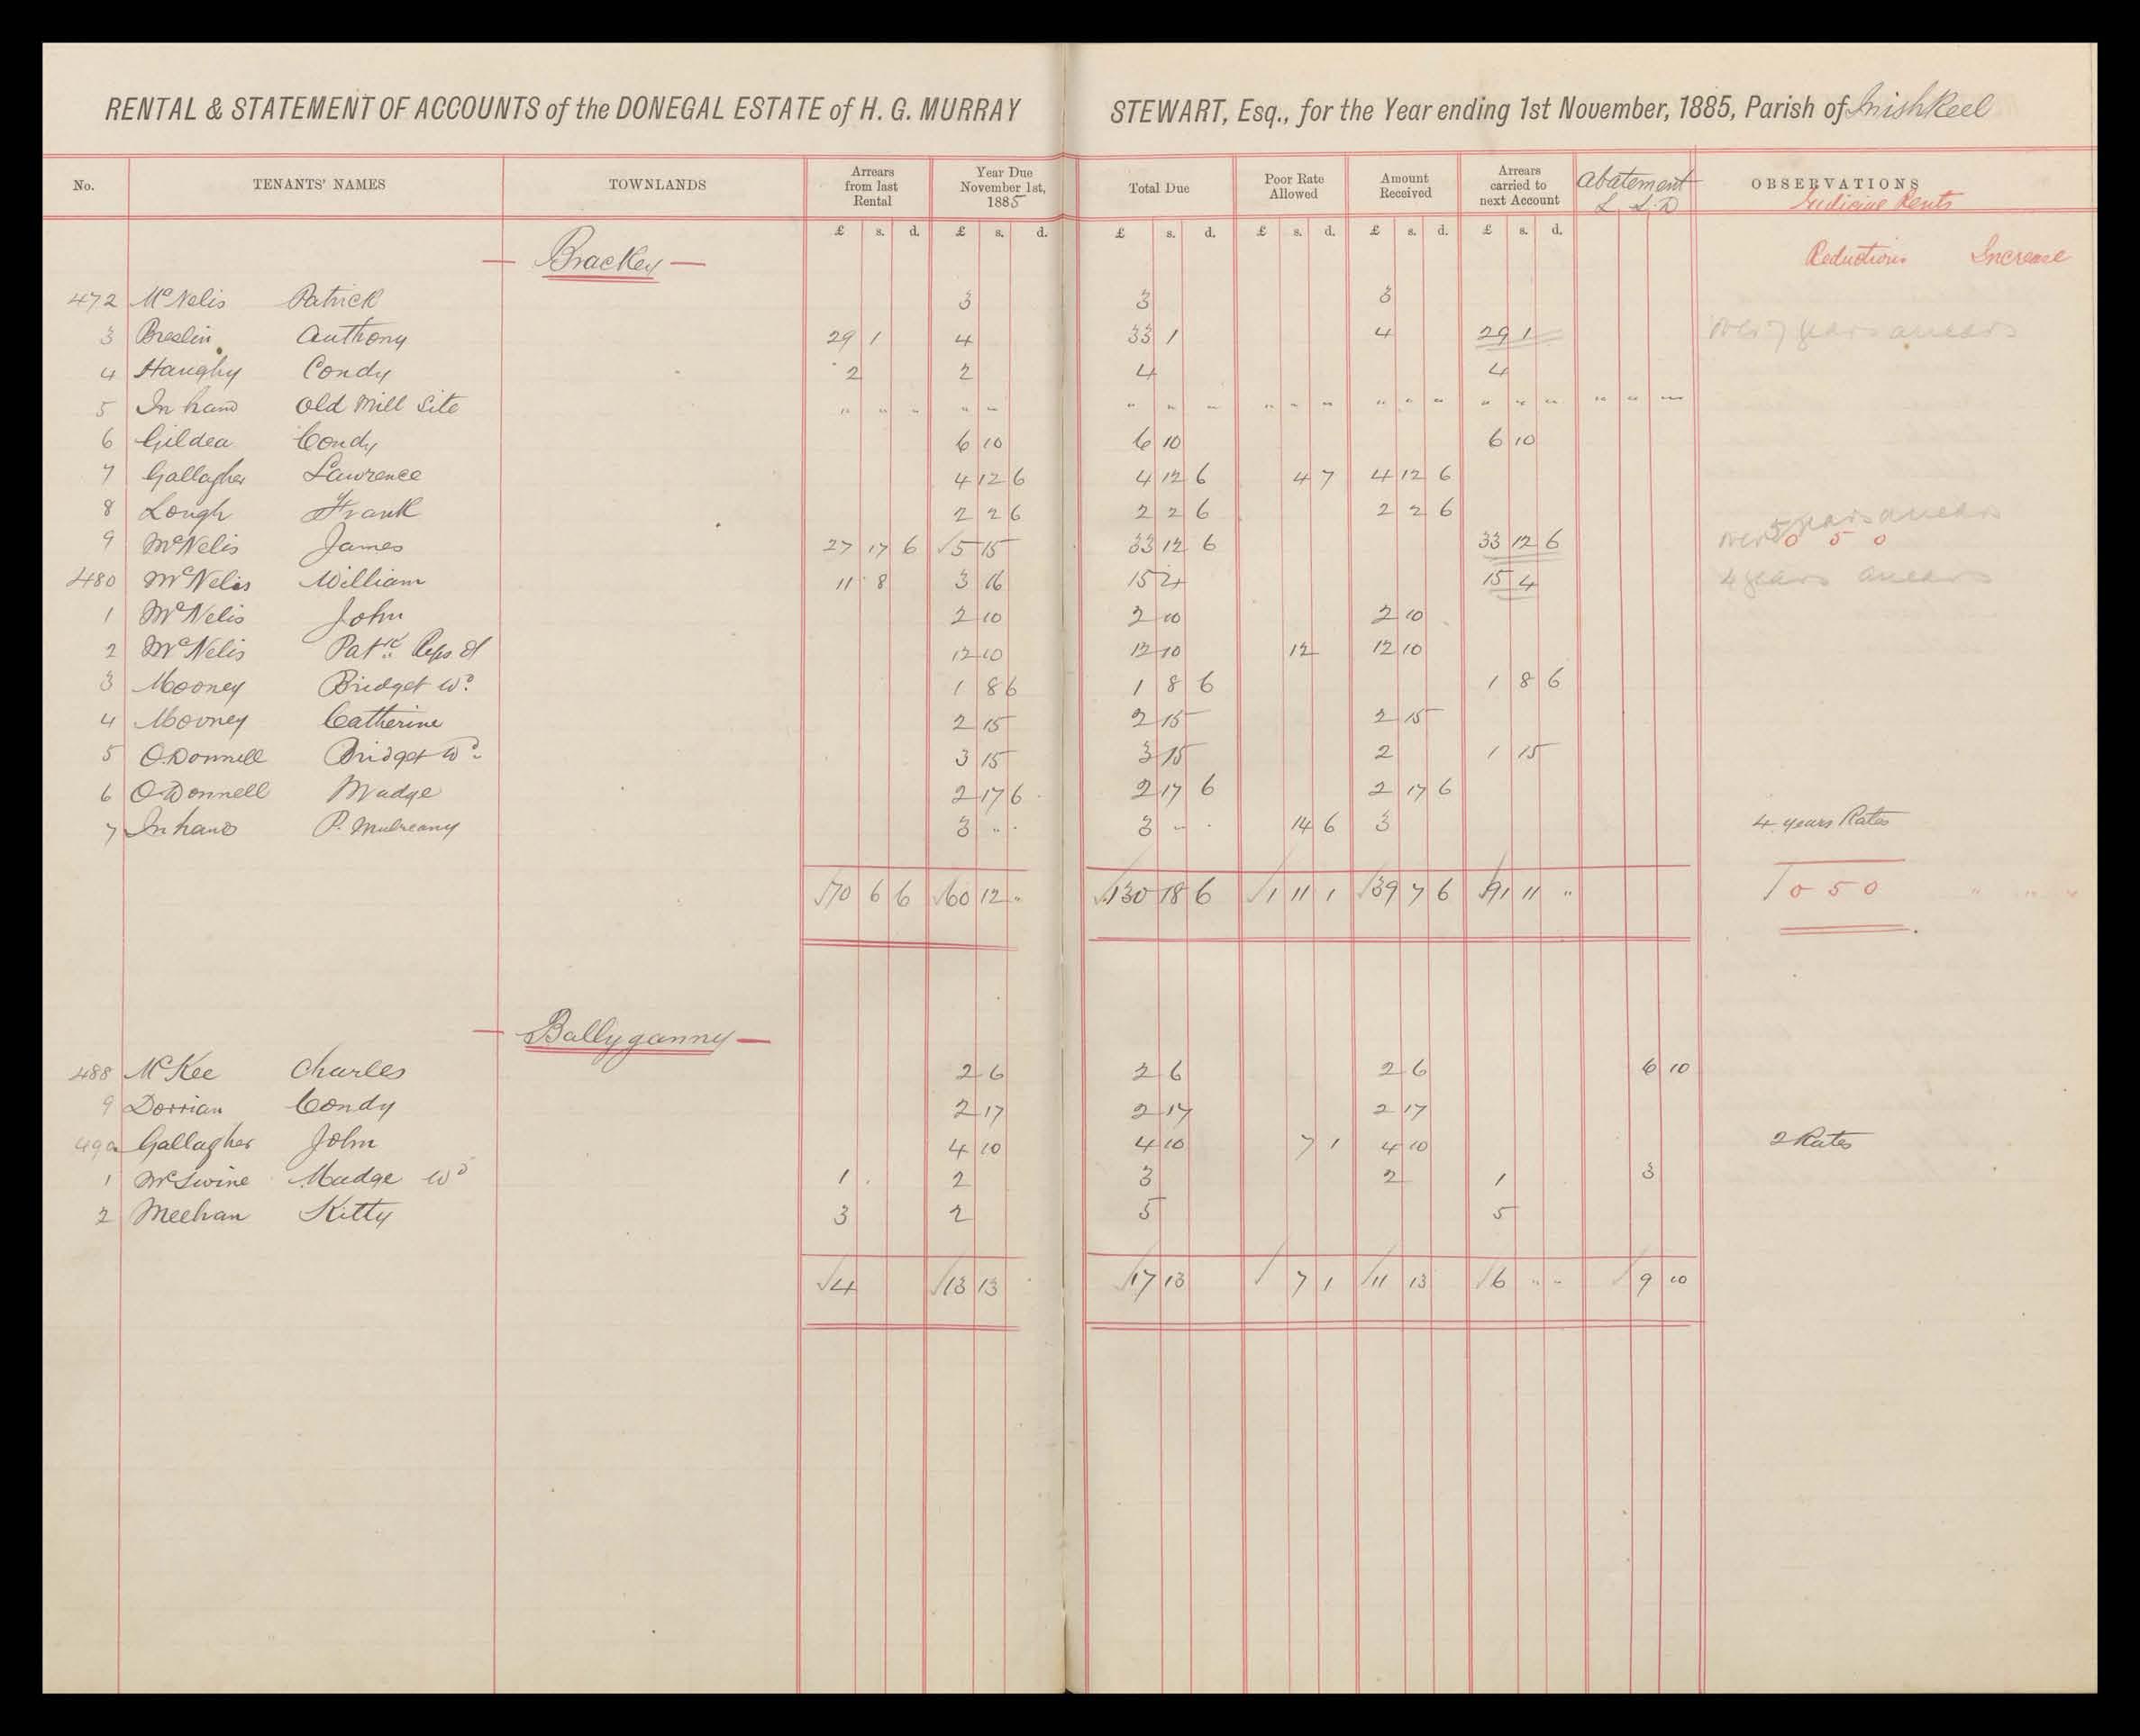 RENTAL & STATEMENT OF ACCOUNTS of the DONEGAL ESTATE of H. G. MURRAY STEWART, Esq., for the Year ending 1st November, 1885, Parish of Inishkeel
No. TENANTS' NAMES TOWNLANDS Arrears from last Rental Year Due November 1st, 1885 Total Due Poor Rate Allowed Amount Received Arrears carried to next Account Abatement £ S. D OBSERVATIONS Judicial Rents
£ s. d. £ s. d. £ s. d. £ s. d. £ s. d. £ s. d.
— Brackey — Reductions Increase
472 McNelis Patrick 3 3 3
3 Breslin Anthony 29 1 4 33 1 4 29 1 over 7 years arrears
4 Haughy Condy 2 2 4 4
5 In hand Old Mill Site " " " " " " " " " " " " " " " " " " " "
6 Gildea Condy 6 10 6 10 6 10
7 Gallagher Lawrence 4 12 6 4 12 6 4 7 4 12 6
8 Lough Frank 2 2 6 2 2 6 2 2 6
9 McNelis James 27 17 6 √5 15 33 12 6 33 12 6 over 5 years arrears 0 5 0
480 McNelis William 11 8 3 16 15 4 15 4 4 years arrears
1 McNelis John 2 10 2 10 2 10
2 McNelis Patk Reps of 12 10 12 10 12 12 10
3 Mooney Bridget Wd 1 8 6 1 8 6 1 8 6
4 Mooney Catherine 2 15 2 15 2 15
5 O.Donnell Bridget Wd 3 15 3 15 2 1 15
6 O.Donnell Madge 2 17 6 2 17 6 2 17 6
7 In hand P. Mulreany 3 " " 3 " " 14 6 3 4 years Rates
√70 6 6 √60 12 " √130 18 6 √1 11 1 √39 7 6 √91 11 " √0 5 0 " " "
— Ballyganny —
488 McKee Charles 2 6 2 6 2 6 6 10
9 Dorrian Condy 2 17 2 17 2 17
490 Gallagher John 4 10 4 10 7 1 4 10 2 Rates
1 McSwine Madge Wd 1 2 3 2 1 3
2 Meehan Kitty 3 2 5 5
√4 √13 13 √17 13 √ 7 1 √11 13 √6 " " √ 9 10